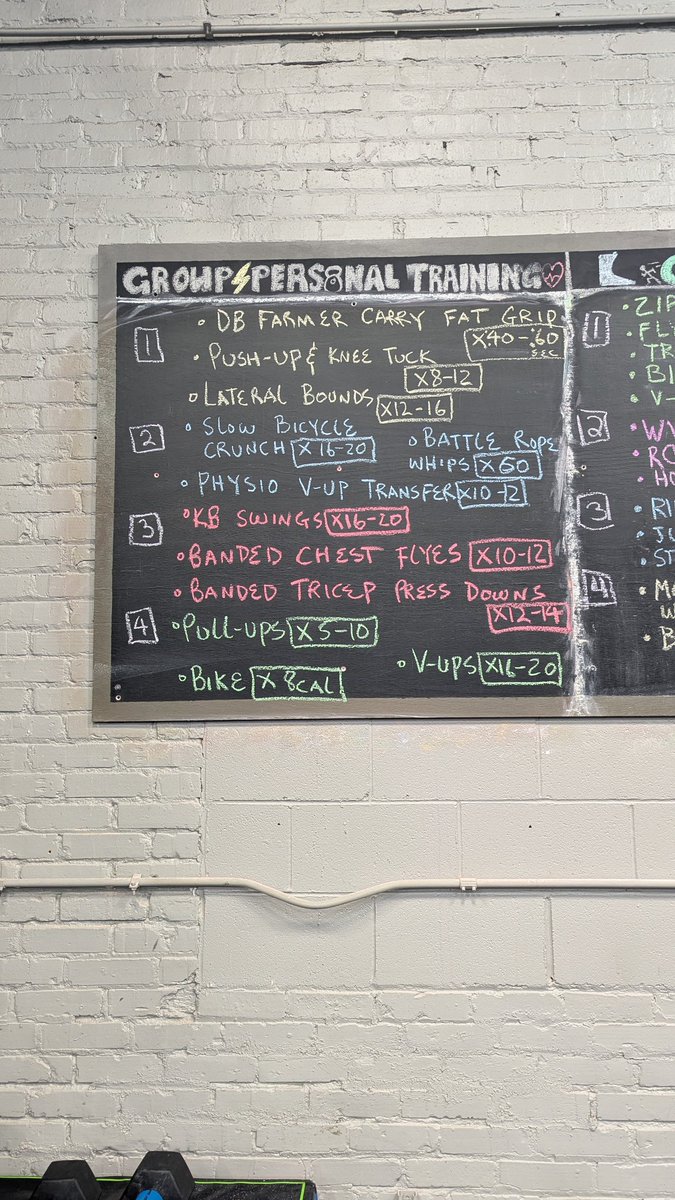 GROUP PERSONAL TRAINING
1
• DB FARMER CARRY FAT GRIP
X40-60
SEC
• PUSH-UP & KNEE TUCK
X8-12
• LATERAL BOUNDS X12-16
2
• SLOW BICYCLE
CRUNCH X16-20
• BATTLE ROPE
WHIPS X60
• PHYSIO V-UP TRANSFER X10-12
3
• KB SWINGS X16-20
• BANDED CHEST FLYES X10-12
• BANDED TRICEP PRESS DOWNS
X12-14
4
• PULL-UPS X5-10
• BIKE X 8CAL
• V-UPS X16-20
1
• ZIP
• FL
• TR
• BI
• V-
2
3
• RI
• JU
• ST
4
• M
W
B